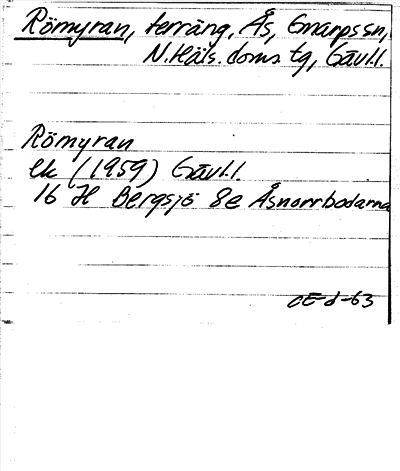 Römyran, terräng, Ås, Gnarpssn,
N.Häls. doms tg, Gävl.l.
Römyran
Ek (1959) Gävl.l.
16 H Bergsjö 8e Åsnorrbodarna
OE-d-63